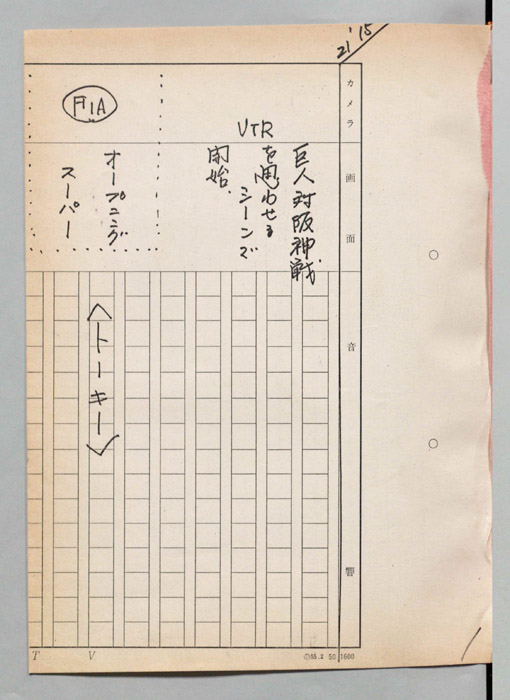 21'15
カメラ
画面
音響
巨人対阪神戦
VTRを思わせる
シーンズ
開始、
オープニング
スーパー
F1A
<トーキー>
T V
55.2 50 1600